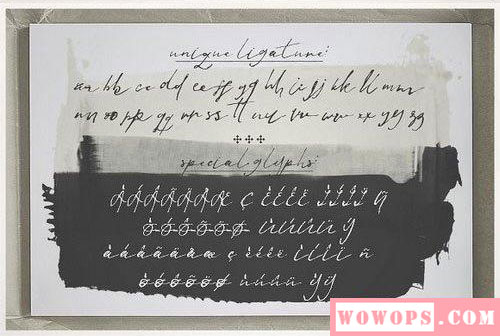 unique ligature:
aa bb cc dd ee ff gg hh ii jj kk ll mm
nn oo pp qq rr ss tt uu vv ww xx yy zz
special glyphs:
ÀÁÂÃÄÅÆ Ç ÈÉÊË ÌÍÎÏ Ñ
ÒÓÔÕÖØ ÙÚÛÜ Ý
àáâãäåæ ç èéêë ìíîï ñ
òóôõöø ùúûü ýÿ
WOWOPS.COM